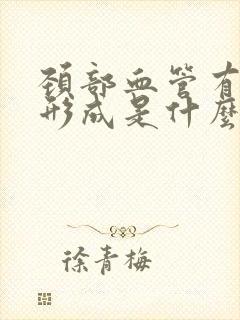 颈部血管有
形成是什麼
徐青梅